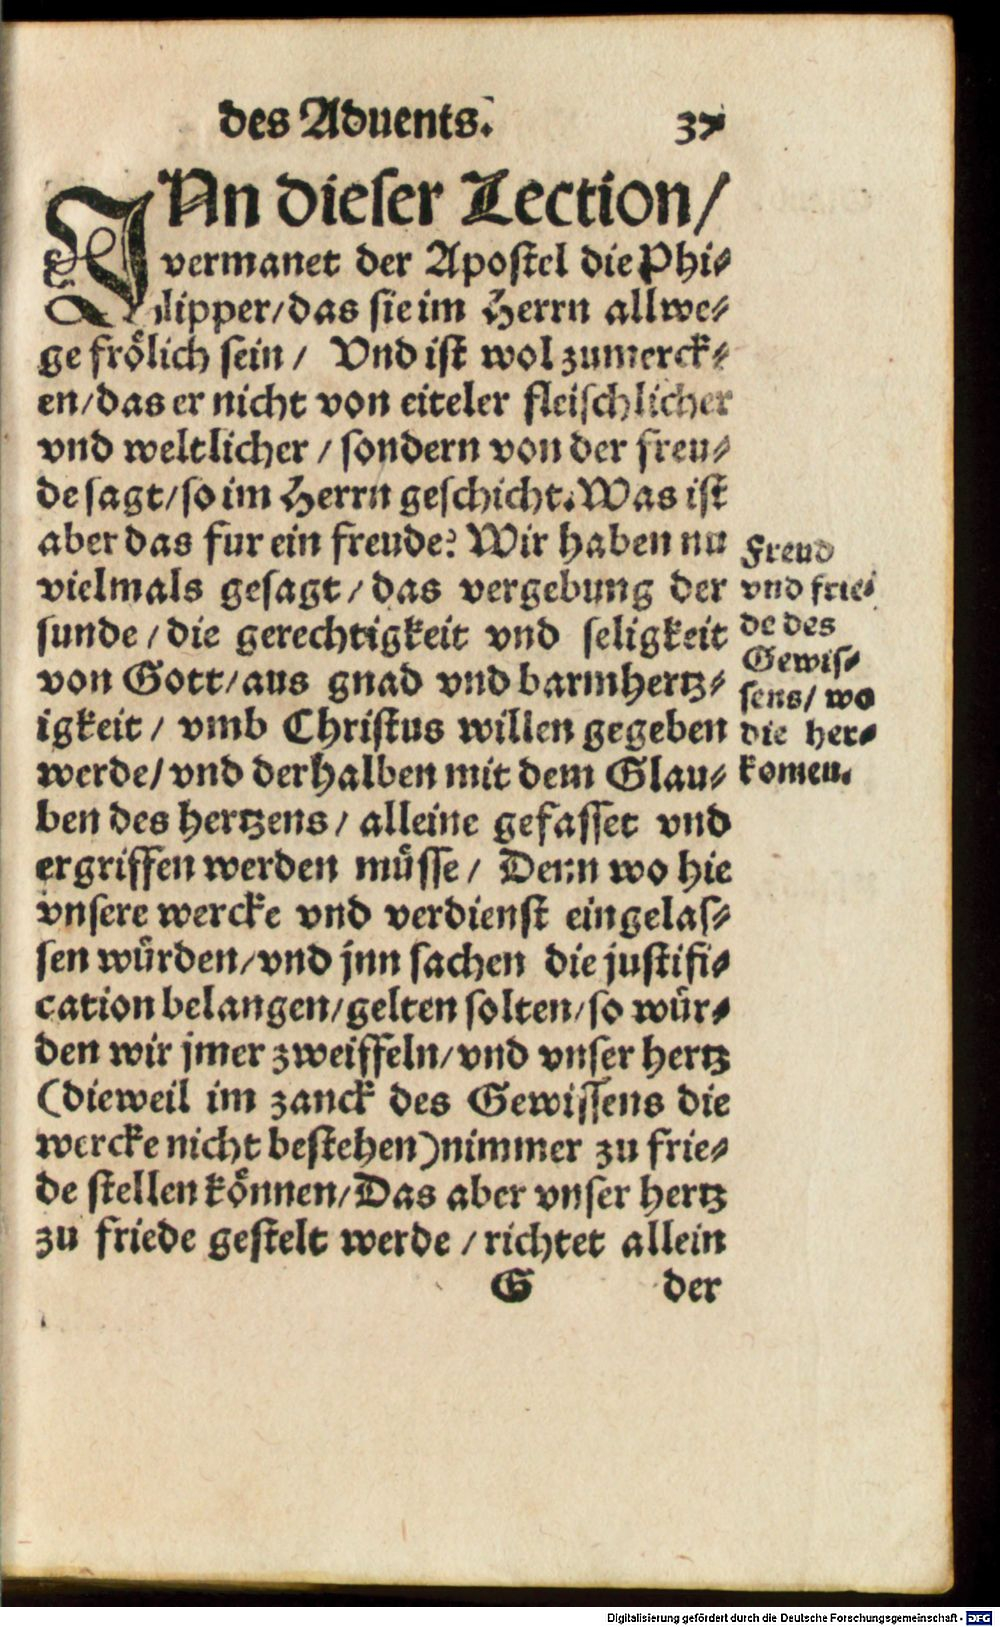 des Aduents. 37
JNn dieser Lection/
vermanet der Apostel die Phi-
lipper/das sie im Herrn allwe-
ge frölich sein/ Vnd ist wol zumerck-
en/das er nicht von eiteler fleischlicher
vnd weltlicher/sondern von der freu-
de sagt/so im Herrn geschicht. Was ist
aber das fur ein freude? Wir haben nu
vielmals gesagt/das vergebung der
sunde/die gerechtigkeit vnd seligkeit
von Gott/aus gnad vnd barmhertz-
igkeit/ vmb Christus willen gegeben
werde/vnd derhalben mit dem Glau-
ben des hertzens/ alleine gefasset vnd
ergriffen werden müsse/ Denn wo hie
vnsere wercke vnd verdienst eingelas-
sen würden/vnd jnn sachen die justifi-
cation belangen/gelten solten/so wür-
den wir jmer zweiffeln/vnd vnser hertz
(dieweil im zanck des Gewissens die
wercke nicht bestehen) nimmer zu frie-
de stellen können/Das aber vnser hertz
zu friede gestelt werde/richtet allein
G der
Freud
vnd frie-
de des
Gewis-
sens/ wo
die her-
komen.
Digitalisierung gefördert durch die Deutsche Forschungsgemeinschaft - DFG